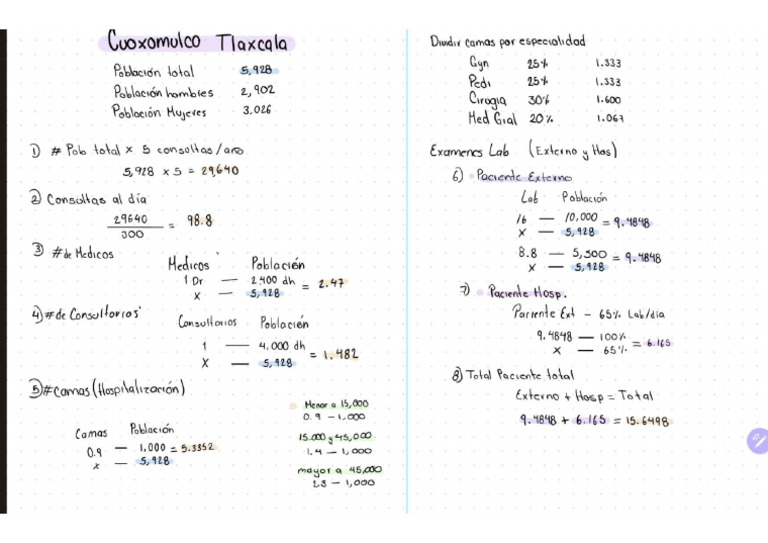 Cuoxomulco Tlaxcala
Población total 5,928
Población hombres 2,902
Población Mujeres 3.026
1) # Pob total x 5 consultas/año
5,928 x 5 = 29,640
2) Consultas al día
29640
300
= 98.8
3) # de Medicos
Medicos Población
1 Dr — 2400 dh
x — 5,928
= 2.47
4) # de Consultorios
Consultorios Población
1 — 4,000 dh
x — 5,928
= 1.482
5) #Camas (Hospitalización)
Camas Población
0.9 — 1,000
x — 5,928
= 5.3352
Menor a 15,000
0.9 – 1,000
15.000 y 45,000
1.4 – 1,000
mayor a 45,000
2.3 – 1,000
Dividir camas por especialidad
Gyn 25% 1.333
Pedi 25% 1.333
Cirogia 30% 1.600
Med Gral 20% 1.067
Examenes Lab (Externo y Hos)
6) Paciente Externo
Lab Población
16 — 10,000
x — 5,928
= 9.4848
8.8 — 5,500
x — 5,928
= 9.4848
7) Paciente Hosp.
Paciente Ext – 65% Lab/dia
9.4848 — 100%
x — 65%
= 6.165
8) Total Paciente total
Externo + Hosp = Total
9.4848 + 6.165 = 15.6498